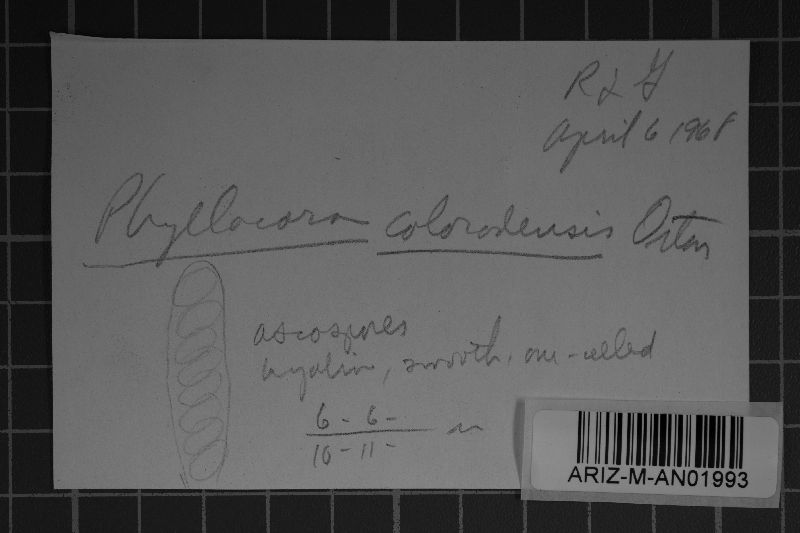 R L G
April 6 1968
Phyllacora coloradensis Orton
ascospores
hyaline, smooth, one-celled
6 - 6 -
10 - 11 -
ARIZ-M-AN01993